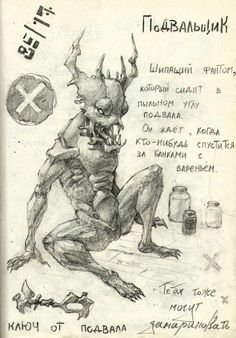 Подвальщик
Шипящий фантом,
который сидит в
пыльном углу
подвала.
Он ждет, когда
кто-нибудь спустится
за банками с
вареньем.
Тебя тоже
могут
замариновать
ключ от подвала